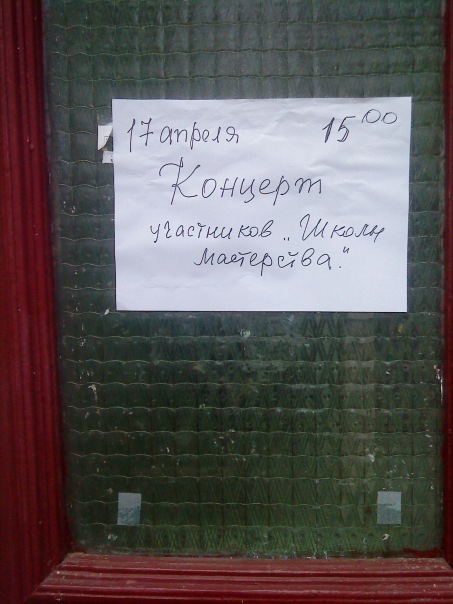 17 апреля 15⁰⁰
Концерт
участников „Школы
мастерства."